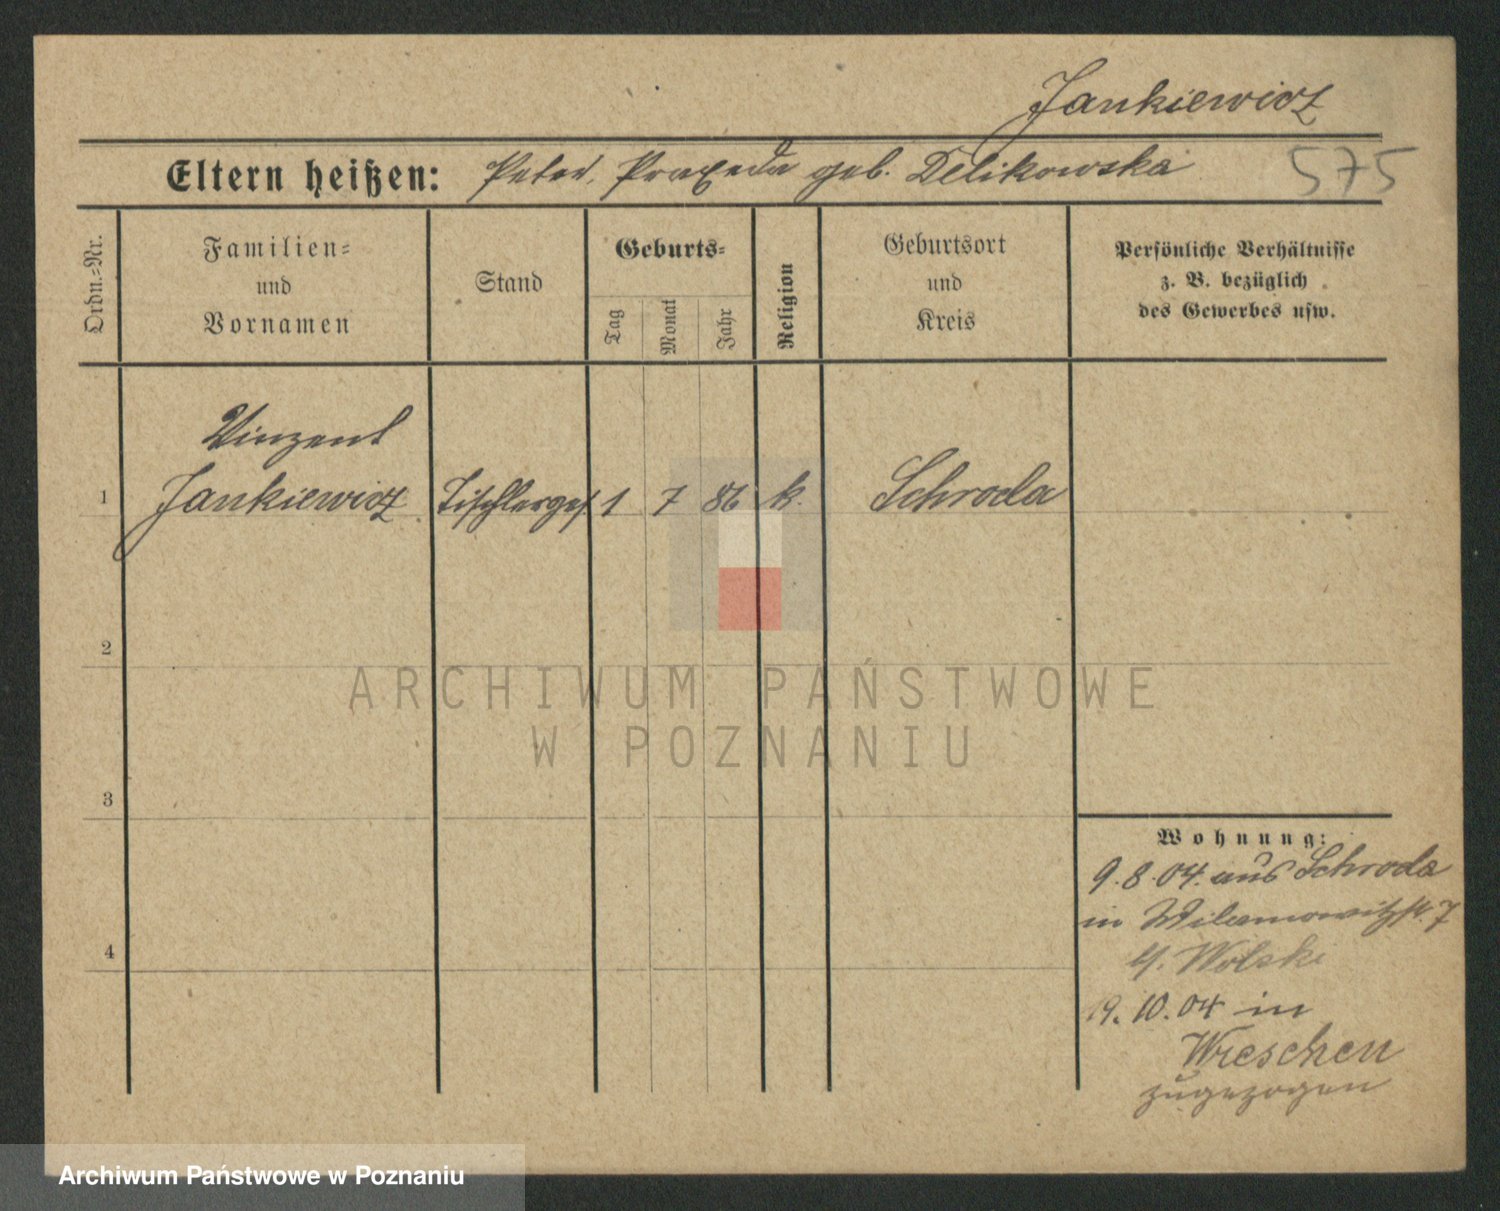 Jankiewicz
Eltern heißen: Peter, Praxeda geb. Delikowska 575
Ordn.-Nr.
Familien-
und
Vornamen
Stand
Geburts-
Tag
Monat
Jahr
Religion
Geburtsort
und
Kreis
Persönliche Verhältnisse
z. B. bezüglich
des Gewerbes usw.
Vinzent
1 Jankiewicz Tischlerges. 1 7 86 k. Schroda
2
ARCHIWUM PAŃSTWOWE
W POZNANIU
3
Wohnung:
9.8.04. aus Schroda
in Wilamowitzstr. 7
4
b/. Wolski
19.10.04 in
Wreschen
zugezogen
Archiwum Państwowe w Poznaniu